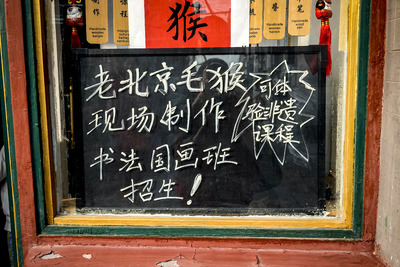 猴
老北京毛猴
现场制作
可体
验非遗
课程
书法国画班
招生！